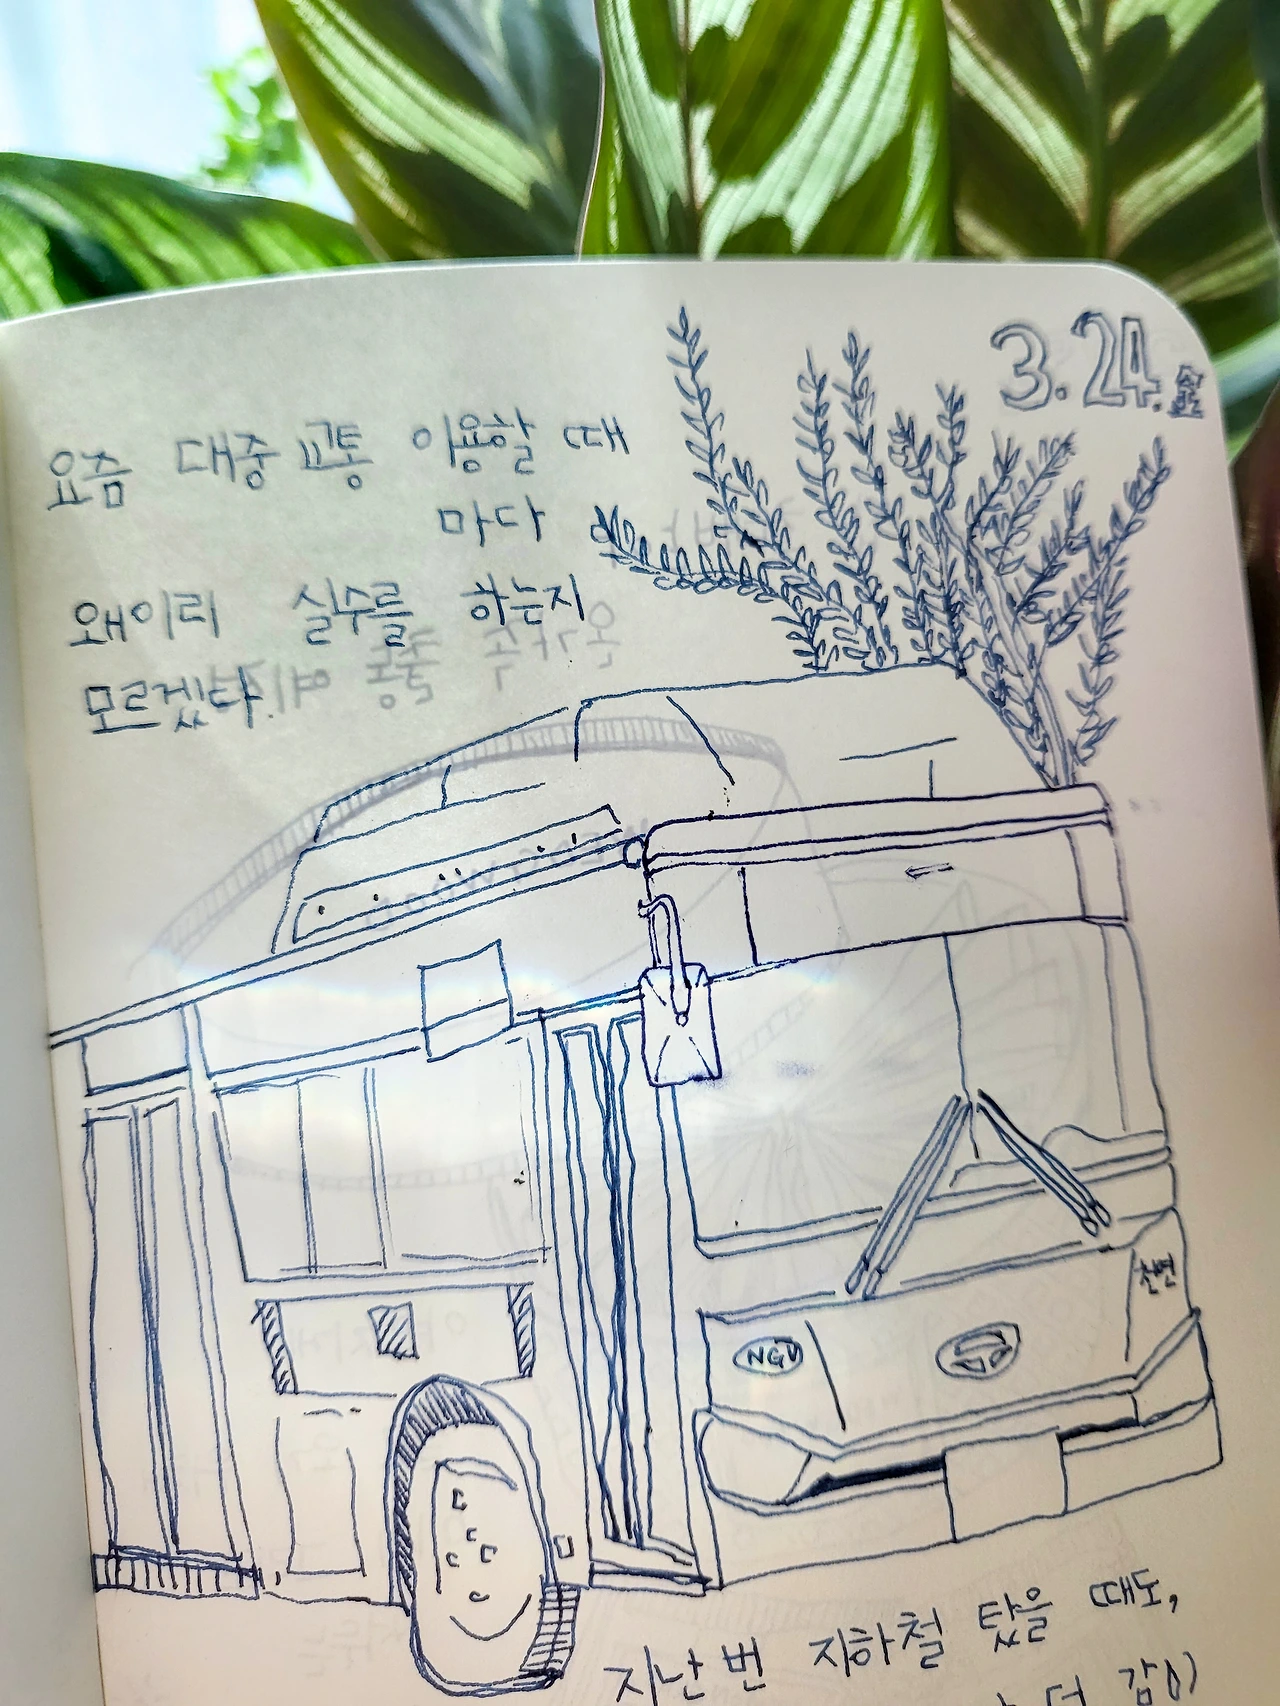 3.24.
요즘 대중교통 이용할 때
마다
왜이리 실수를 하는지
모르겠다.
천연
NGV
지난번 지하철 탔을 때도,
더 갑이